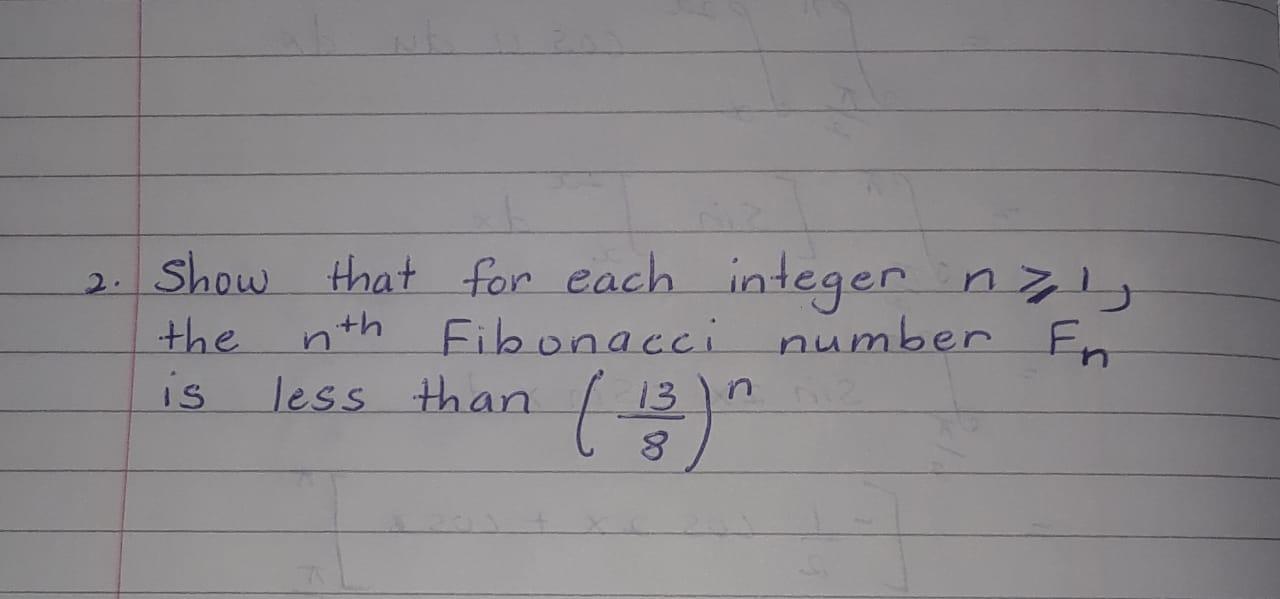 2. Show that for each integer n ⩾ 1,
the nth Fibonacci number Fn
is less than (13/8)^n